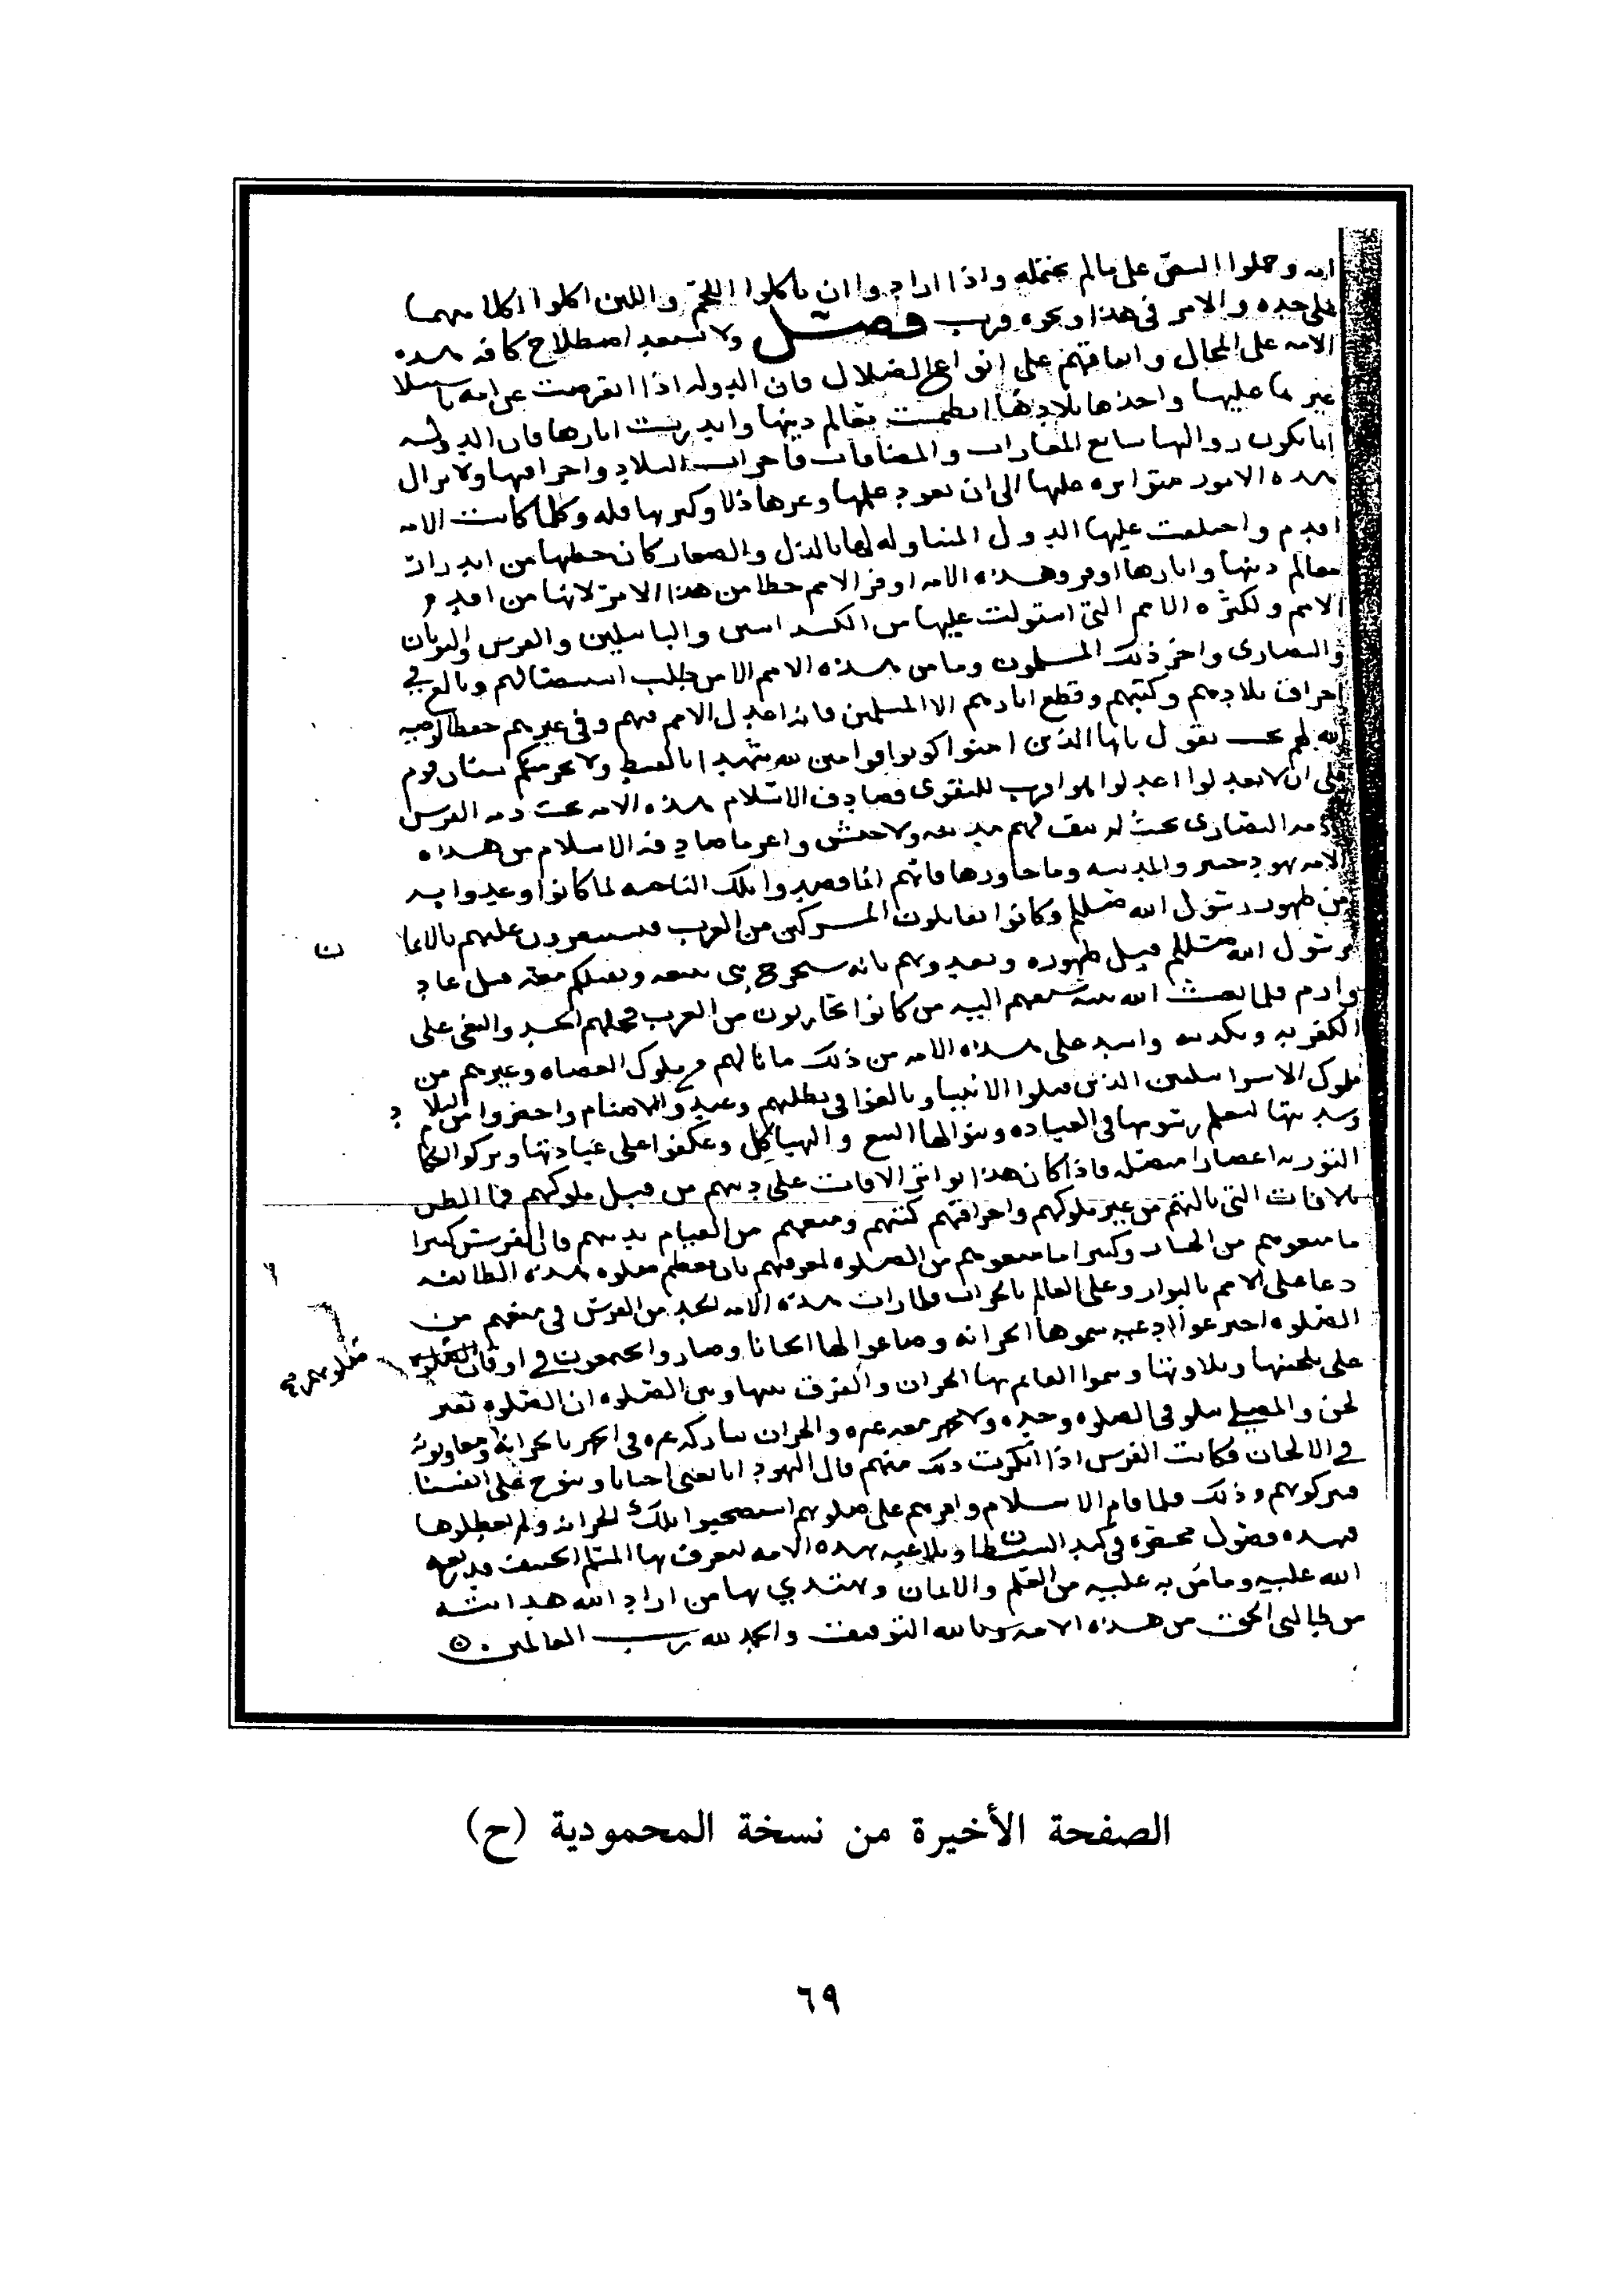 الله وحملوا النص على ما لم يحتمله واذا ارادوا ان ياكلوا اللحم واللبن اكلوا كلا منهما
على حده والامر في هذا ونحوه قريب فصل ولا تستبعد اصطلاح كافة هذه
الامه على المحال واتفاقهم على انواع الضلال فان الدوله اذا انقرضت عن امه باستيلا
غيرها عليها واخذها بلادها انطمست معالم دينها واندرست اثارها فان الدوله
انما يكون زوالها بتتابع الغارات والمصافات واخراب البلاد واحراقها ولا تزال
هذه الامور متواتره عليها الى ان يعود علمها وعزها ذلا وكثرتها قله وكلما كانت الامه
اقدم واختلفت عليها الدول المتناوله لها بالذل والصغار كان حظها من اندراس
معالم دينها واثارها اوفر وهذه الامه اوفر الامم حظا من هذا الامر لانها من اقدم
الامم ولكثره الامم التي استولت عليها من الكسدانيين والبابليين والفرس واليونان
والنصارى واخر ذلك المسلمون وما من هذه الامم الا من طلب استئصالهم وبالغ في
احراق بلادهم وكتبهم وقطع اثارهم الا المسلمين فانهم اعدل الامم فيهم وفي غيرهم حفظا لوصيه
الله لهم حيث يقول يا ايها الذين امنوا كونوا قوامين لله شهدا بالقسط ولا يجرمنكم شنان قوم
على ان لا تعدلوا اعدلوا هو اقرب للتقوى فصادف الاسلام هذه الامه تحت ذمه الفرس
وذمه النصارى بحيث لم يبق لهم مدينه ولا جيش واعز ما صادفه الاسلام من هذه
الامه يهود خيبر والمدينه وما جاورها فانهم انما قصدوا تلك الناحيه لما كانوا وعدوا به
من ظهور رسول الله صلى الله عليه وسلم وكانوا يقاتلون المشركين من العرب فيستنصرون عليهم بالايمان
برسول الله صلى الله عليه وسلم قبل ظهوره ويعدونهم بانه سيخرج نبي نتبعه ونقتلكم معه قتل عاد
وارم فلما بعث الله نبيه سبقهم اليه من كانوا يحاربون من العرب فحملهم الحسد والبغي على
الكفر به وتكذيبه واشد على هذه الامه من ذلك ما نالهم من ملوك العصاه وغيرهم من
ملوك الاسرائيليين الذين قتلوا الانبيا وبالغوا في تطلبهم وعبدوا الاصنام واحضروا من البلاد
وسدنتها لتعلم رسومها في العباده وبنوا لها البيع والهياكل وعكفوا على عبادتها وتركوا احكام
التوريه اعصارا متصله فاذا كان هذا تواتر الافات على دينهم من قبل ملوكهم فما الظن
بالافات التي نالتهم من غير ملوكهم واحراقهم كتبهم ومنعهم من القيام بدينهم فان الفرس كثيرا
ما منعوهم من الختان وكثيرا ما منعوهم من الصلوه لمعرفتهم بان معظم صلوه هذه الطائفه
دعا على الامم بالبوار وعلى العالم بالخراب فلما رات هذه الامه الجد من الفرس في منعهم من
الصلوه اخترعوا ادعيه سموها الحزانه وصاغوا لها الحانا وصاروا يجتمعون في اوقات الصلوه
على تلحينها وتلاوتها وسموا القائم بها الحزان والفرق بينها وبين الصلوه ان الصلوه بغير
لحن والمصلي يتلو في الصلوه وحده ولا يجهر معه غيره والحزان يشاركه غيره في الجهر بالحزانه ومعاونونه
في الالحان فكانت الفرس اذا انكرت ذلك منهم قال اليهود انا نغني احيانا وننوح على انفسنا
فيتركونهم وذلك فلما قام الاسلام واقرهم على صلوتهم استصحبوا تلك الحزانه ولم يعطلوها
فهذه فصول مختصره في كيد الشيطان وتلاعبه بهذه الامه ليعرف بها المسلم الحنيف قدر نعمه
الله عليه وما من به عليه من العلم والايمان ويهتدي بها من اراد الله هدايته
من طالبي الحق من هذه الامه وبالله التوفيق والحمد لله رب العالمين
الصفحة الأخيرة من نسخة المحمودية (ح)
٦٩